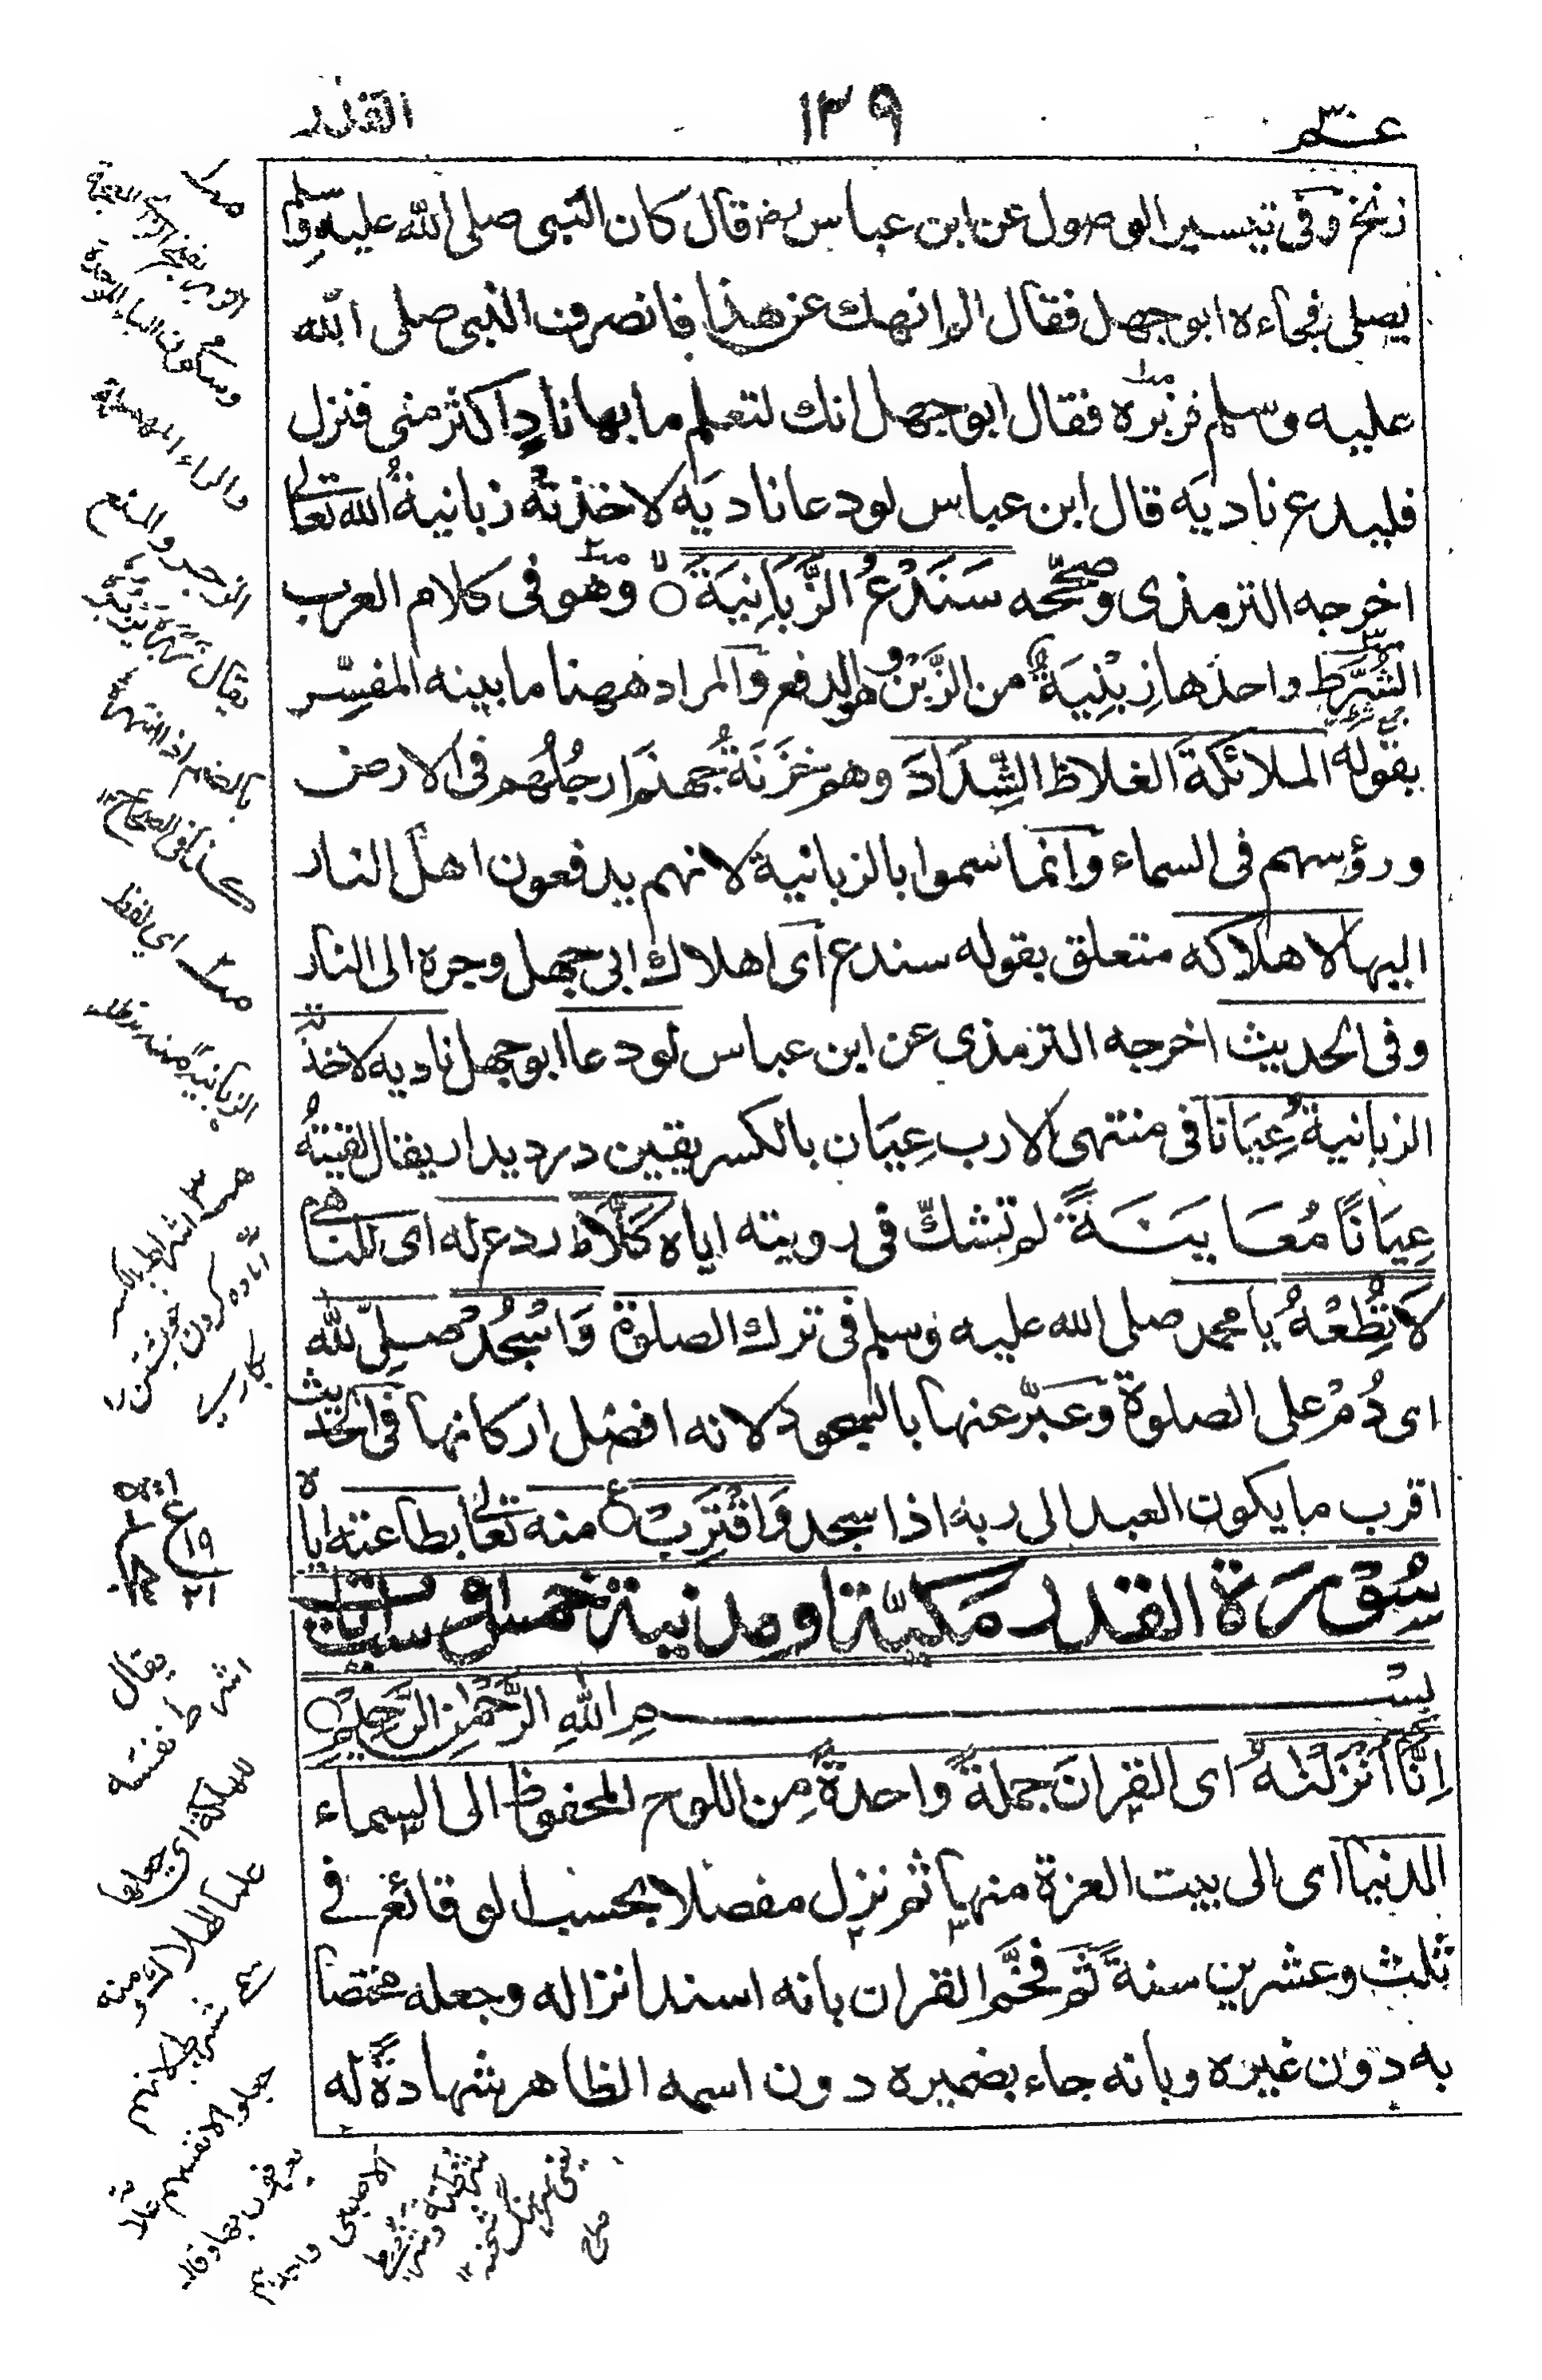 عم ٣٠
١٣٩
القدر
زنخ وفى تيسير الوصول عن ابن عباس رض قال كان النبى صلى الله عليه وسلم
يصلى فجاءه ابوجهل فقال الم انهك عن هذا فانصرف النبى صلى الله
عليه وسلم فزبره فقال ابوجهل انك لتعلم ما بها نادٍ اكثر منى فنزل
فليدع ناديَه قال ابن عباس لو دعا ناديَه لاخذتْه زبانيةُ الله تعالى
اخرجه الترمذى وصحّحه سَنَدْعُ الزَّبَانِيَةَ ۝ وهو فى كلام العرب
الشُّرَط واحدها زِبْنِيَة من الزَّبْن وهو الدفع والمراد ههنا ما بينه المفسّر
بقوله الملائكةَ الغلاظ الشِّدَادَ وهم خَزَنَةُ جهنم ارجُلُهم فى الارض
ورؤسهم فى السماء وانما سموا بالزبانية لانهم يدفعون اهل النار
اليها لاهلاكه متعلق بقوله سندع اى اهلاك ابى جهل وجره الى النار
وفى الحديث اخرجه الترمذى عن ابن عباس لو دعا ابوجهل ناديه لاخذته
الزبانية عِيَانا فى منتهى الارب عِيَان بالكسر يقين در ديدار يقال لقيتهُ
عِيَانًا مُعَايَنَةً لم تشكّ فى رويته اياه كَلَّا ط ردع له اى للناهى
لَا تُطِعْهُ يا محمد صلى الله عليه وسلم فى ترك الصلوة وَاسْجُدْ صلِّ لله
اى دُمْ على الصلوة وعبّر عنها بالسجود لانه افضل اركانها فى الحديث
اقرب ما يكون العبد الى ربه اذا سجد وَاقْتَرِبْ ۝ منه تعالى بطاعته اياه
سُوْرَة القدر مَكيّة او مدنية خمس او ست اٰيات
بِسْمِ اللهِ الرَّحْمٰنِ الرَّحِيْمِ ۝
اِنَّا اَنْزَلْنٰهُ اى القرانَ جملةً واحدةً من اللوح المحفوظ الى السماء
الدنيا اى الى بيت العزة منها ثم نزل مفصلا بحسب الوقائع فى
ثلث وعشرين سنة ثم فخّم القران بانه اسند انزاله وجعله مختصا
به دون غيره وبانه جاء بضميره دون اسمه الظاهر شهادةً له
وسكون الباء الموحدة
والراء المهملة
الزجر والمنع
بالضم اذا انتهره
كذا فى الصحاح
اى لفظ
الزبانية منه مدظله
يقال
اشرط نفسه